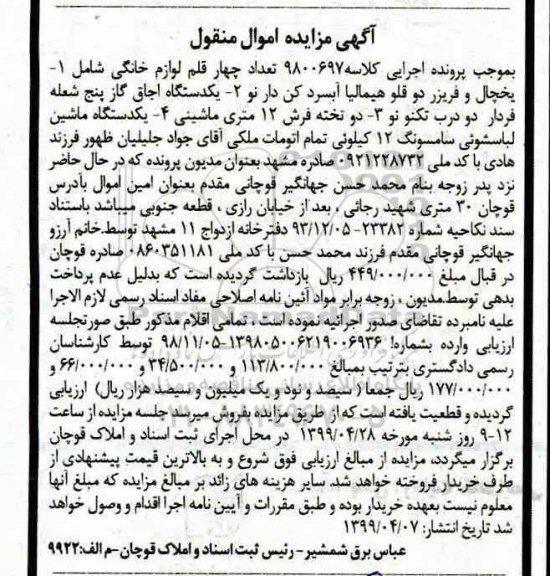 آگهی مزایده اموال منقول
بموجب پرونده اجرایی کلاسه ۹۸۰۰۶۹۷ تعداد چهار قلم لوازم خانگی شامل ۱-
یخچال و فریزر دو قلو هیمالیا آبسرد کن دار نو ۲- یکدستگاه اجاق گاز پنج شعله
فردار دو درب تکنو نو ۳- دو تخته فرش ۱۲ متری ماشینی ۴- یکدستگاه ماشین
لباسشوئی سامسونگ ۱۲ کیلوئی تمام اتومات ملکی آقای جواد جلیلیان ظهور فرزند
هادی با کد ملی ۰۹۲۱۲۲۸۷۳۲ صادره مشهد بعنوان مدیون پرونده که در حال حاضر
نزد پدر زوجه بنام محمد حسن جهانگیر قوچانی مقدم بعنوان امین اموال بآدرس
قوچان ۳۰ متری شهید رجائی ، بعد از خیابان رازی ، قطعه جنوبی میباشد باستناد
سند نکاحیه شماره ۲۳۳۸۲- ۹۳/۱۲/۰۵ دفترخانه ازدواج ۱۱ مشهد توسط.خانم آرزو
جهانگیر قوچانی مقدم فرزند محمد حسن با کد ملی ۰۸۶۰۳۵۱۱۸۱ صادره قوچان
در قبال مبلغ ۴۴۹/۰۰۰/۰۰۰ ریال بازداشت گردیده است که بدلیل عدم پرداخت
بدهی توسط.مدیون ، زوجه برابر مواد آئین نامه اصلاحی مفاد اسناد رسمی لازم الاجرا
علیه نامبرده تقاضای صدور اجرائیه نموده است ، تمامی اقلام مذکور طبق صورتجلسه
ارزیابی وارده بشماره: ۱۳۹۸۰۵۰۰۶۲۱۹۰۰۶۹۳۶-۹۸/۱۱/۰۵ توسط کارشناسان
رسمی دادگستری بترتیب بمبالغ ۱۱۳/۸۰۰/۰۰۰ و ۳۴/۵۰۰/۰۰۰ و ۶۶/۰۰۰/۰۰۰ و
۱۷۷/۰۰۰/۰۰۰ ریال جمعا ( سیصد و نود و یک میلیون و سیصد هزار ریال) ارزیابی
گردیده و قطعیت یافته است که از طریق مزایده بفروش میرسد جلسه مزایده از ساعت
۹-۱۲ روز شنبه مورخه ۱۳۹۹/۰۴/۲۸ در محل اجرای ثبت اسناد و املاک قوچان
برگزار میگردد، مزایده از مبالغ ارزیابی فوق شروع و به بالاترین قیمت پیشنهادی از
طرف خریدار فروخته خواهد شد. سایر هزینه های زائد بر مبالغ مزایده که مبلغ آنها
معلوم نیست بعهده خریدار بوده و طبق مقررات و آیین نامه اجرا اقدام و وصول خواهد
شد تاریخ انتشار: ۱۳۹۹/۰۴/۰۷
عباس برق شمشیر- رئیس ثبت اسناد و املاک قوچان-م الف:۹۹۲۲